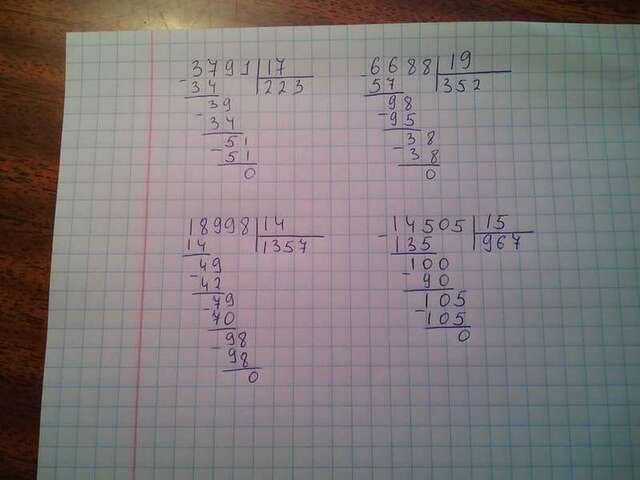 3791 17
- 34 223
39
- 34
51
- 51
0
6688 19
- 57 352
98
- 95
38
- 38
0
18998 14
14 1357
49
- 42
79
- 70
98
- 98
0
- 14505 15
135 967
100
- 90
105
- 105
0